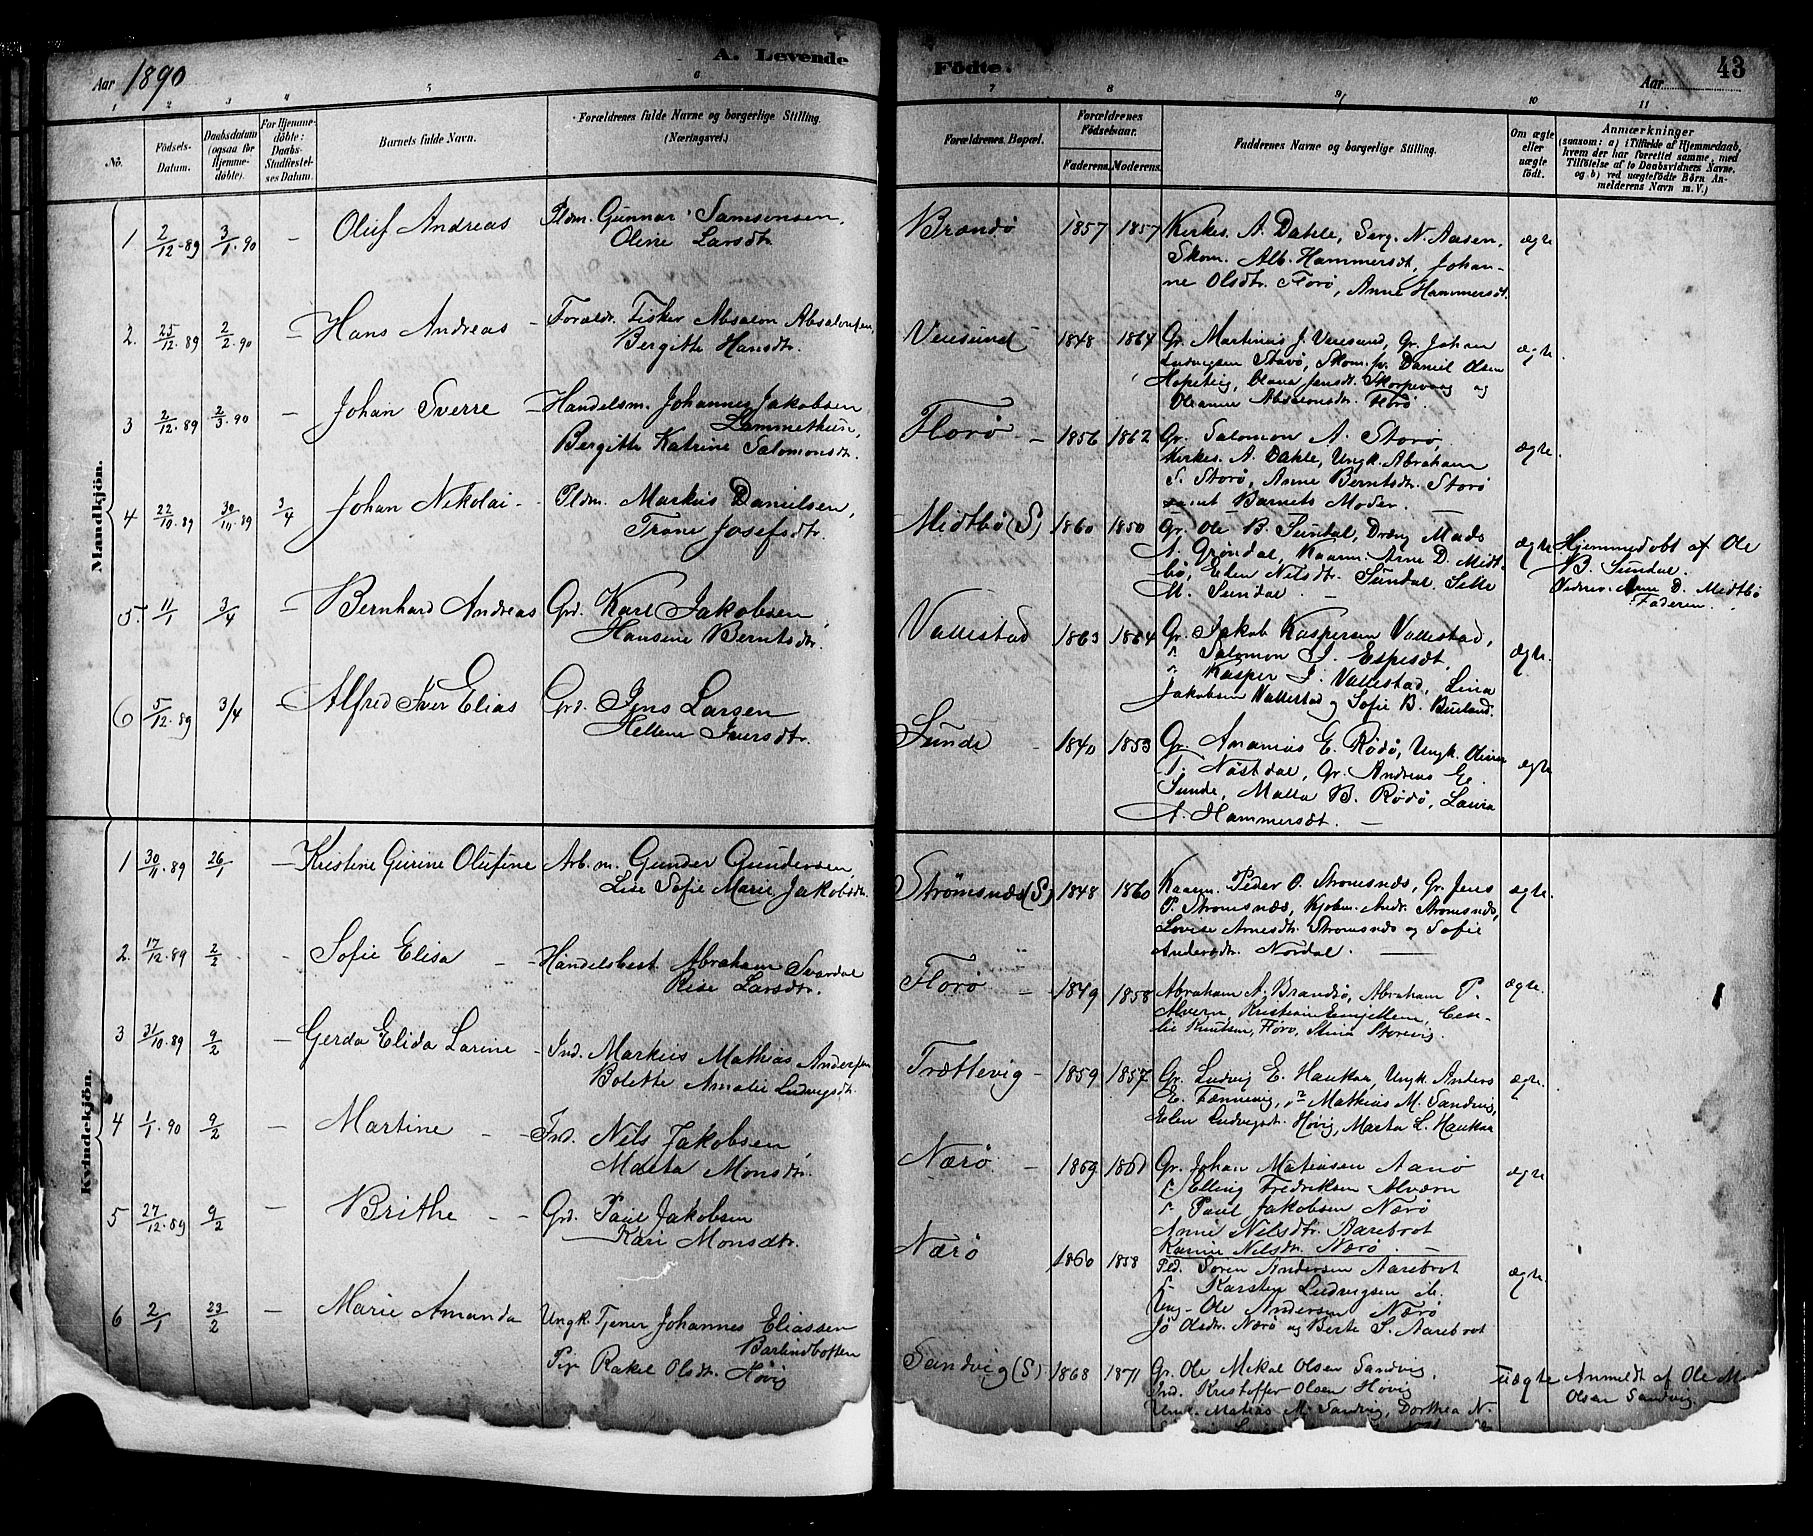 Aar 1890
A. Levende
Födte.
Aar
43
1 2 3 4 5 6 7 8 9 10 11
No.
Födsels-
Datum.
Daabsdatum
(ogsaa for
Hjemme-
döbte).
For Hjemme-
döbte:
Daabs-
Stadfæstel-
ses Datum.
Barnets fulde Navn.
Forældrenes fulde Navne og borgerlige Stilling.
(Næringsvei.)
Forældrenes Bopæl.
Forældrenes
Födselsaar.
Faderens.
Moderens.
Faddernes Navne og borgerlige Stilling.
Om ægte
eller
uægte
födt.
Anmærkninger
(saasom: a) i Tilfælde af Hjemmedaab,
hvem der har forrettet samme, med
Tilföielse af to Daabsvidners Navne,
og b) ved uægtefödte Börn An-
melderens Navn m. V.)
Mandkjön.
1 2/12-89 3/1-90 - Oluf Andreas
Pldm. Gunnar Samsonsen,
Oline Larsdtr.
Brandø 1857 1857
Kirkes. A. Dahle, Serg. N. Aasen,
Skom. Alb. Hammersdt, Johan-
ne Olsdtr. Florø, Anne Hammersdt.
ægte
2. 25/12.89 2/2.90 - Hans Andreas -
Forældr. Fisker Absalon Absalonsen,
Bergitte Hansdtr.
Veiesund 1848 1864
Gr. Martinus J. Veiesund, Gr. Johan
Ludvigsen Storø, Skom. Daniel Olsen
Hopeteig, Olava Jensdt. Skorpevaag og
Oleanne Absalonsdtr. Florø.
ægte.
3 2/12.89 2/3.90 - Johan Sverre -
Handelsm. Johannes Jakobsen
Lammethun,
Bergitte Katrine Salomonsdtr.
Florø - 1856 1862
Gr. Salomon A. Storø,
Kirkes. A. Dahle, Ungk. Abraham
S. Storø, Anne Berntsdtr. Storø
samt Barnets Moder. -
ægte.
4 22/10.89 30/11.89 3/4 Johan Nikolai -
Pldm. Markus Danielsen,
Trone Josefsdtr.
Midtbø (S) 1860 1850
Gr. Ole B. Sundal, Dreng Mads
A. Grøndal, Kaarm. Arne D. Midt-
bø, Elen Nilsdtr. Sundal, Silke
M. Sundal. -
ægte
Hjemmedøbt af Ole
B. Sundal.
Vidner: Arne D. Midtbø
Faderen.
5. 11/1 3/4 - Bernhard Andreas
Grd. Karl Jakobsen,
Hansine Berntsdtr.
Vallestad 1863 1864
Gr. Jakob Kaspersen Vallestad,
" Salomon J. Espesdt,
" Kasper J. Vallestad, Lina
Jakobsen Vallestad og Sofie B. Bueland.
ægte.
6 5/12.89 3/4 - Alfred Iver Elias
Grd. Jens Larsen
Hellene Iversdtr.
Sunde - 1840 1853
Gr. Ananias E. Rødø, Ungk. Oliver
T. Nøstdal, Gr. Andreas E.
Sunde, Malla B. Rødø, Laura
A. Hammersdt. -
ægte
Kvindekjön.
1 30/11.89 26/1 - Kristine Gurine Olufine
Arb. m. Gunder Gundersen,
Lise Sofie Marie Jakobsdtr.
Strømsnæs (S) 1848 1860
Kaarm. Peder O. Strømsnæs, Gr. Jens
P. Strømsnæs, Kjøbm. Andr. Strømsnæs,
Lovise Arnesdtr. Strømsnæs og Sofie
Andersdtr. Nordal. -
ægte.
2. 17/12.89 2/2 - Sofie Elisa -
Handelsbest. Abraham Svardal
Rise Larsdtr.
Florø - 1849 1858
Abraham A. Brandsø, Abraham P.
Alvern, Kristian Leinjellem, Cesi-
lie Knutsen, Florø, Stina Storevig.
ægte.
3 31/10.89 9/2 - Gerda Elida Larine -
Ind. Markus Mathias Andersen
Bolette Amalie Ludvigsdtr.
Trættevig - 1859 1857
Gr. Ludvig E. Haukaa, Ungk. Anders
E. Fænnevig, " Mathias M. Sandvig,
Elen Ludvigsdt. Høvig, Marta L. Haukaa
ægte.
4 1/1.90 9/2 - Martine -
Ind. Nils Jakobsen
Marta Monsdtr.
Nærø - 1859
Gr. Johan Matiasen Aanø
" Elling Fredriksen Alværn
" Paul Jakobsen Nærø
Anne Nilsdtr. Aarebrot
Karine Nilsdtr. Nærø. -
ægte
5 27/12.89 9/2 - Brithe - -
Grd. Paul Jakobsen
Kari Monsdtr.
Nærø 1860 1858
Pld. Søren Andersen Aarebrot
" Karsten Ludvigsen ib.
Ung. Ole Andersen Nærø
Jo Olsdtr. Nærø og Berte S. Aarebrot
ægte
6 2/1 23/2 - Marie Amanda
Ungk. Tjener Johannes Eliassen
Barlindbotten
Pige Rakel Olsdtr. Høvig
Sandvig (S) 1868 1871
Gr. Ole Mikal Olsen Sandvig
Ind. Kristoffer Olsen Høvig
Ungk. Matias M. Sandvig, Dorthea N.
uægte
Anmeldt af Ole M.
Olsen Sandvig.